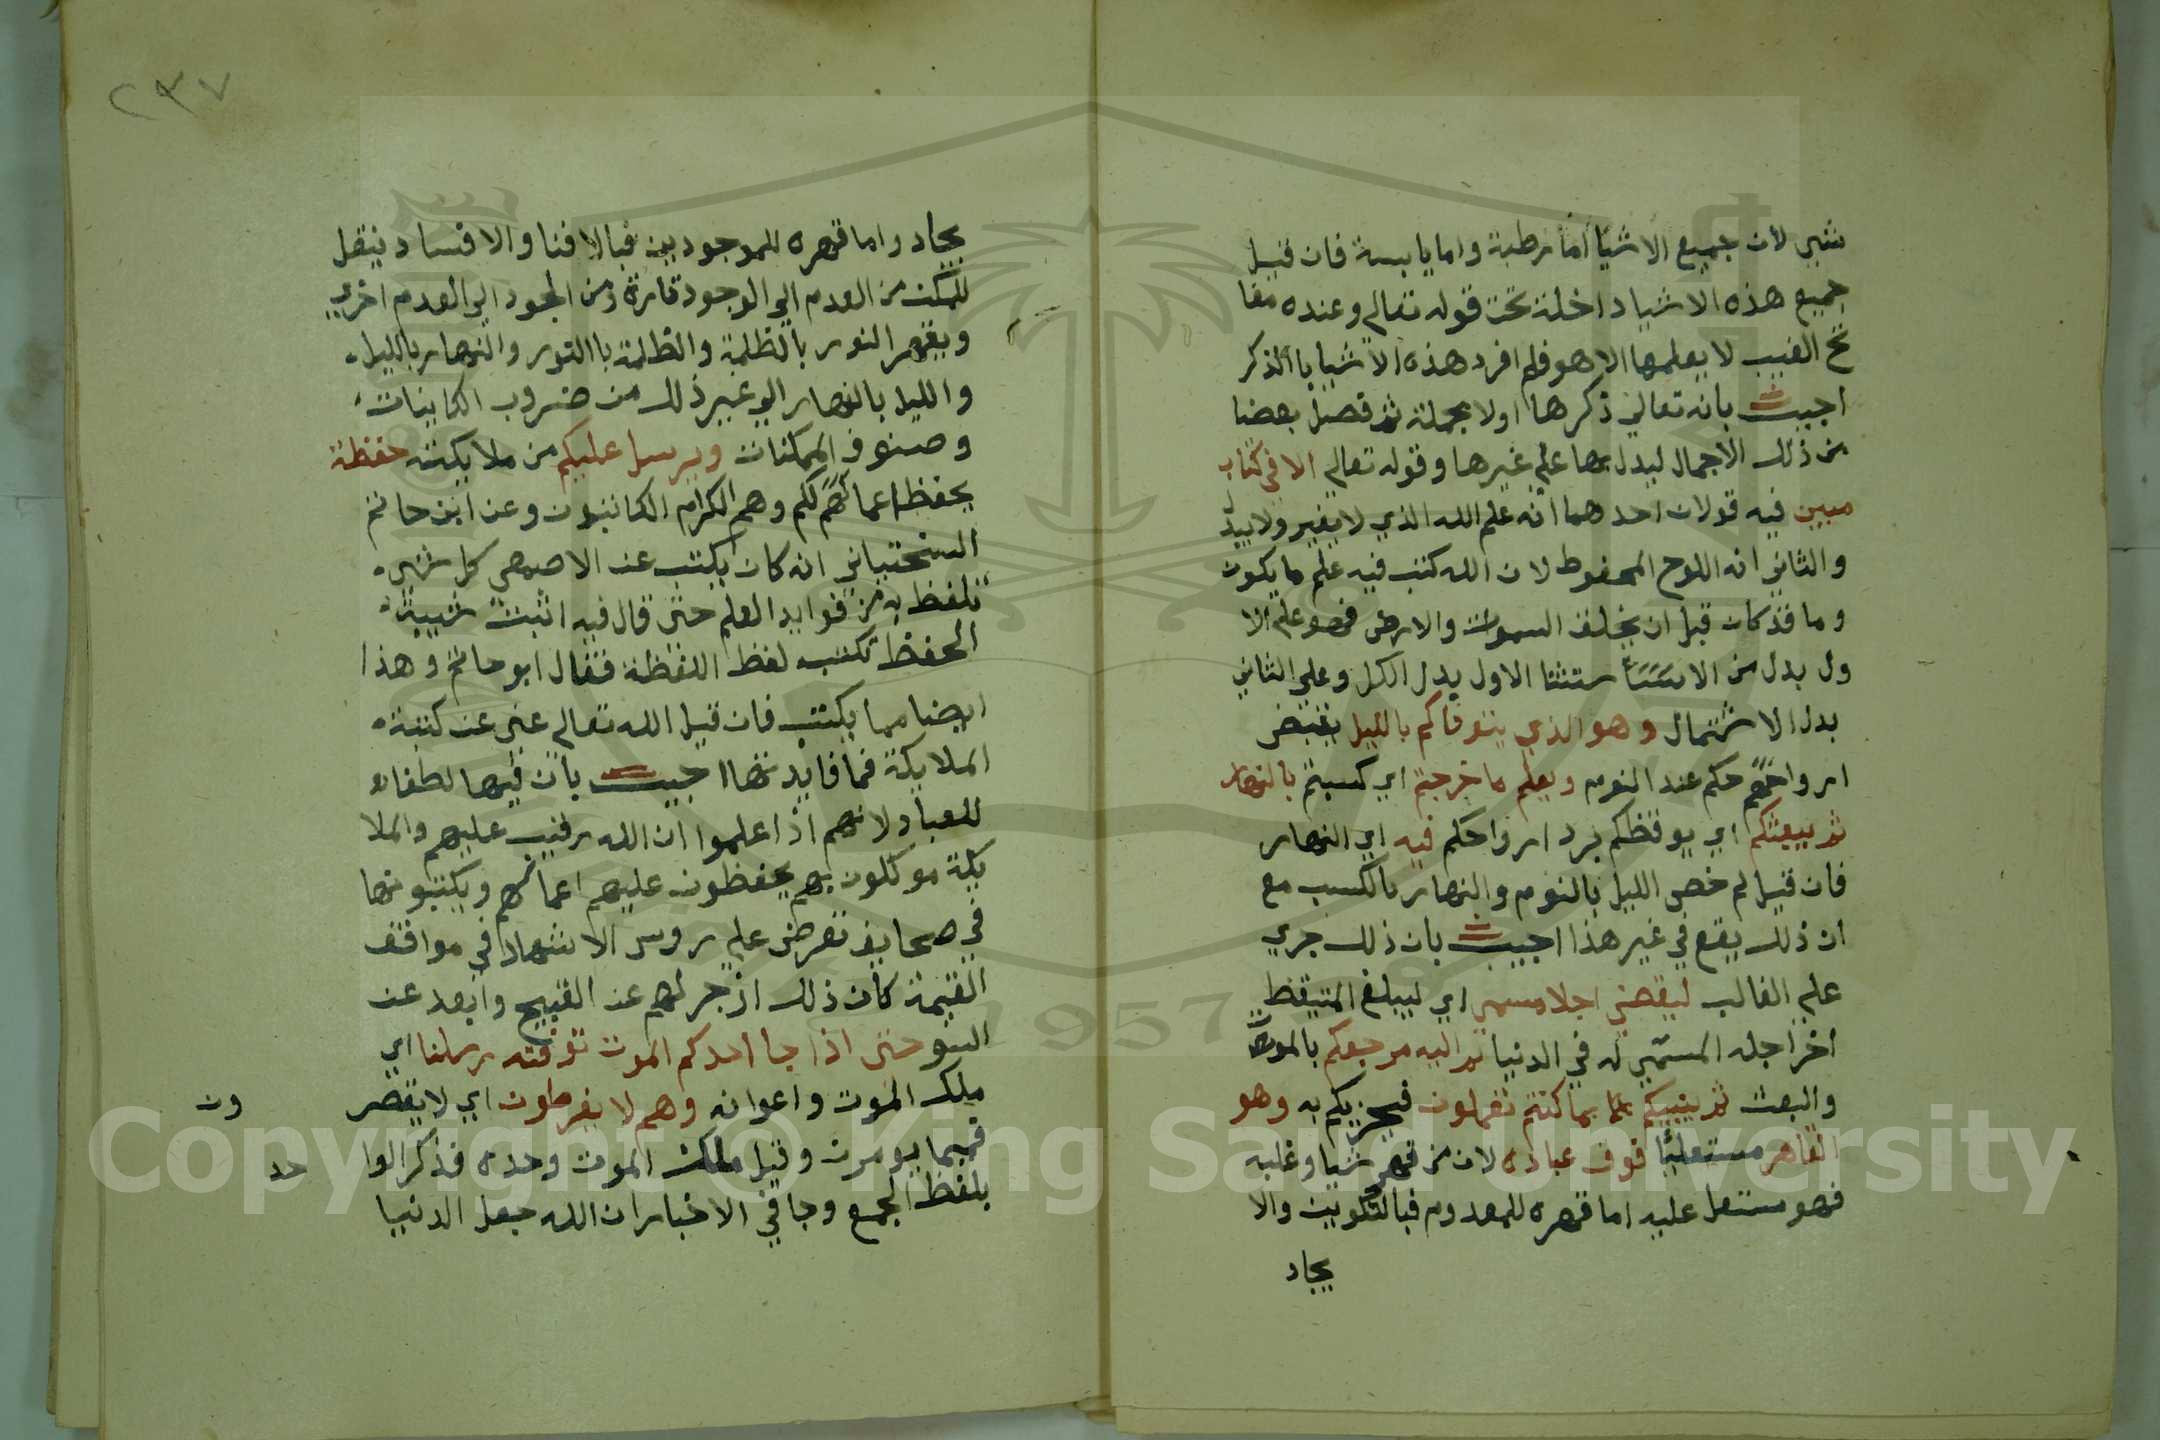 شي لان جميع الاشيا اما رطبة واما يابسة فان قيل
جميع هذه الاشيا داخلة تحت قوله تعالي وعنده مفا
تح الغيب لا يعلمها الا هو فلم افرد هذه الاشيا باالذكر
اجيب بانه تعالي ذكرها اولا مجملة ثم فصل بعضا
من ذلك الاجمال ليدل بها علي غيرها وقوله تعالي الا في كتاب
مبين فيه قولان احدهما انه علم الله الذي لا يغير ولا يبدل
والثاني انه اللوح المحفوط لان الله كتب فيه علم ما يكون
وما قد كان قبل ان يخلق السموات والارض فهو علي الا
ول بدل من الاستثنا الاول بدل الكل وعلي الثاني
بدل الاشتمال وهو الذي يتوفاكم بالليل يقبض
ارواحكم عند النوم ويعلم ما جرحتم اي كسبتم بالنهار
ثم يبعثكم اي يوقظكم برد ارواحكم فيه اي النهار
فان قيل لم خص الليل بالنوم والنهار بالكسب مع
ان ذلك يقع في غير هذا اجيب بان ذلك جري
علي الغالب ليقضي اجلا مسمي اي ليبلغ المتيقظ
اخر اجله المسمي له في الدنيا ثم اليه مرجعكم بالموت
والبعث ثم ينبيكم بما كنتم تعملون فيجزيكم به وهو
القاهر مستعليا فوق عباده لان من قهر شيا وغلبه
فهو مستعل عليه اما قهره للمعدوم فبالتكوين والا
يجاد
٢٣٧
يجاد واما قهره للموجودين فبالافنا والافساد ينقل
للمكن من العدم الي الوجود تارة ومن الجود الي العدم اخري
ويقهر النور بالظلمة والظلمة باالنور والنهار بالليل
والليل بالنهار الي غير ذلك من ضروب الكاينات
وصنوف الممكنات ويرسل عليكم من ملايكته حفظة
يحفظ اعمالكم وهم الكرام الكاتبون وعن ابن حاتم
السختياني انه كان يكتب عند الاصمعي كل شي
تلفظ به من فوايد العلم حتي قال فيه انت شبيه
الحفظ تكتب لفظ اللفظة فقال ابو حاتم وهذا
ايضا مما يكتب فان قيل الله تعالي غني عن كتبة
الملايكة فما فايدتها اجيب بان فيها لطفا
للعباد لانهم اذا علموا ان الله رقيب عليهم والملا
يكة موكلون بهم يحفظون عليهم اعمالهم ويكتبونها
في صحايف تعرض علي روس الاشهاد في مواقف
القيمة كان ذلك ازجر لهم عن القبيح وابعد عن
السو حتي اذا جا احدكم الموت توفته رسلنا اي
ملك الموت واعوانه وهم لا يفرطون اي لا يقصر
ون
فيما يومرت وقيل ملك الموت وحده فذكر الوا
حد
بلفظ الجمع وجا في الاخبار ان الله جعل الدنيا
Copyright © King Saud University
1957